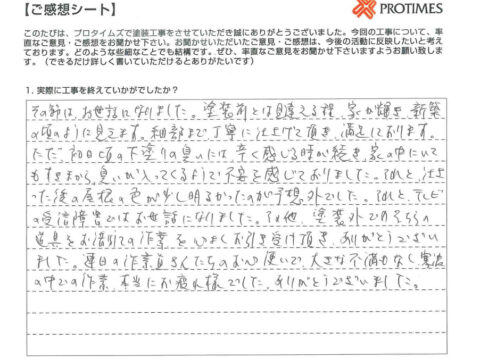 【ご感想シート】
PROTIMES
このたびは、プロタイムズで塗装工事をさせていただき誠にありがとうございました。今回の工事について、率
直なご意見・ご感想をお聞かせ下さい。お聞かせいただいたご意見・ご感想は、今後の活動に反映したいと考え
ております。どのような些細なことでも結構です。ぜひ、率直なご意見をお聞かせ下さいますようお願い致しま
す。（できるだけ詳しく書いていただけるとありがたいです）
1. 実際に工事を終えていかがでしたか？
その節は、お世話になりました。塗装前とは見違える程、家が輝き、新築
の頃のように見えます。細部まで丁寧に仕上げて頂き、満足しております。
ただ、初日頃の下塗りの臭いには、辛く感じる時が続き、家の中にいて
もすきまから、臭いが入ってくるようで不安を感じておりました。あと、仕上
った後の屋根の色が少し明るかったのが予想外でした。あと、テレビ
の受信障害ではお世話になりました。その他、塗装外での
道具をお借りての作業を、お引き受け頂き、ありがとうござい
ました。連日の作業員さんたちのお心使いで、大きな不満もなく、
の中での作業、本当にお疲れ様でした。ありがとうございました。